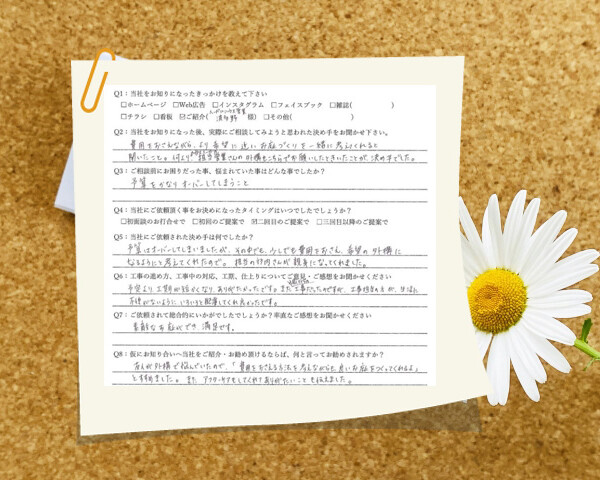 Q1：当社をお知りになったきっかけを教えて下さい
□ホームページ □Web広告 □インスタグラム □フェイスブック □雑誌( )
□チラシ □看板 ☑ご紹介( 様) □その他( )
Q2：当社をお知りになった後、実際にご相談してみようと思われた決め手をお聞かせ下さい。
費用をおさえながら、より希望に近いお庭づくりを一緒に考えてくれると
聞いたこと。何より担当営業さんの外構もこちらでお願いしたときいたことが、決め手でした。
Q3：ご相談前にお困りだった事、悩まれていた事はどんな事でしたか？
予算をかなりオーバーしてしまうこと
Q4：当社にご依頼頂く事をお決めになったタイミングはいつでしたでしょうか？
□初面談のお打合せで □初回のご提案で ☑二回目のご提案で □三回目以降のご提案で
Q5：当社にご依頼された決め手は何でしたか？
予算はオーバーしてしまいましたが、それでも、少しでも費用をおさえ、希望の外構に
なるようにと考えてくれたので。担当の竹内さんが親身になってくれました。
Q6：工事の進め方、工事中の対応、工期、仕上りについてご意見・ご感想をお聞かせください
予定より工期が短くなり、ありがたかったです。また工事だったのですが、工事担当の方が、生活に
不便がないように、いろいろと配慮してくれ良かったです。
Q7：ご依頼されて総合的にいかがでしたでしょうか？率直なご感想をお聞かせください
素敵なお庭ができ、満足です。
Q8：仮にお知り合いへ当社をご紹介・お勧め頂けるならば、何と言ってお勧めされますか？
友人が外構で悩んでいたので、「費用をおさえる方法を考えながらも、良いお庭をつくってくれるよ」
とすすめました。また、アフターケアもしてくれてありがたいことも伝えました。